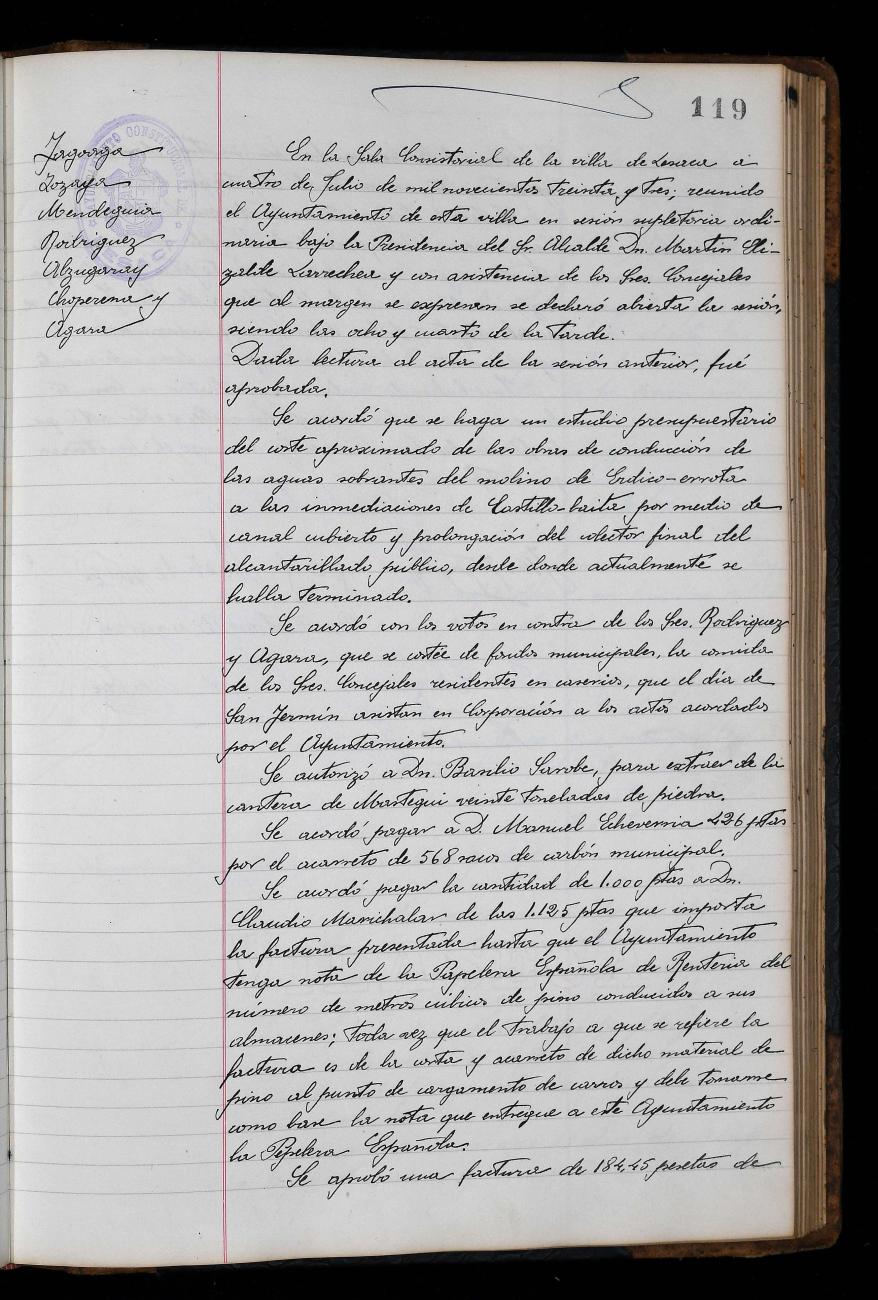 119
Jagoaga
Zozaya
Mendeguia
Rodriguez
Alzugaray
Choperena y
Agara
AYUNTAMIENTO CONSTITUCIONAL DE LESACA
En la Sala Consistorial de la villa de Lesaca a
cuatro de Julio de mil novecientos treinta y tres; reunido
el Ayuntamiento de esta villa en sesión supletoria ordi-
naria bajo la Presidencia del Sr. Alcalde Dn. Martin Eli-
zalde Larrechea y con asistencia de los Sres. Concejales
que al margen se expresan se declaró abierta la sesión,
siendo las ocho y cuarto de la tarde.
Dada lectura al acta de la sesión anterior, fué
aprobada.
Se acordó que se haga un estudio presupuestario
del coste aproximado de las obras de conducción de
las aguas sobrantes del molino de Erdico-errota
a las inmediaciones de Castillo-baita por medio de
canal cubierto y prolongación del colector final del
alcantarillado público, desde donde actualmente se
halla terminado.
Se acordó con los votos en contra de los Sres. Rodriguez
y Agara, que se costée de fondos municipales, la comida
de los Sres. Concejales residentes en caserios, que el día de
San Fermín asistan en Corporación a los actos acordados
por el Ayuntamiento.
Se autorizó a Dn. Basilio Sarobe, para extraer de la
cantera de Mastegui veinte toneladas de piedra.
Se acordó pagar a D. Manuel Echeverria 426 ptas
por el acarreto de 568 sacos de carbón municipal.
Se acordó pagar la cantidad de 1.000 ptas a Dn.
Claudio Marichalar de las 1.125 ptas que importa
la factura presentada hasta que el Ayuntamiento
tenga nota de la Papelera Española de Renteria del
número de metros cúbicos de pino conducidos a sus
almacenes; toda vez que el trabajo a que se refiere la
factura es de la corta y acarreto de dicho material de
pino al punto de cargamento de carros y debe tomarse
como base la nota que entregue a este Ayuntamiento
la Pepelera Española.
Se aprobó una factura de 184,45 pesetas de